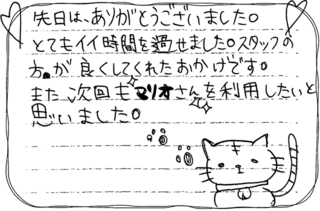 先日は、ありがとうございました。
とてもイイ時間を過せました。スタッフの
方が良くしてくれたおかげです。
また、次回もマリオさんを利用したいと
思いました。